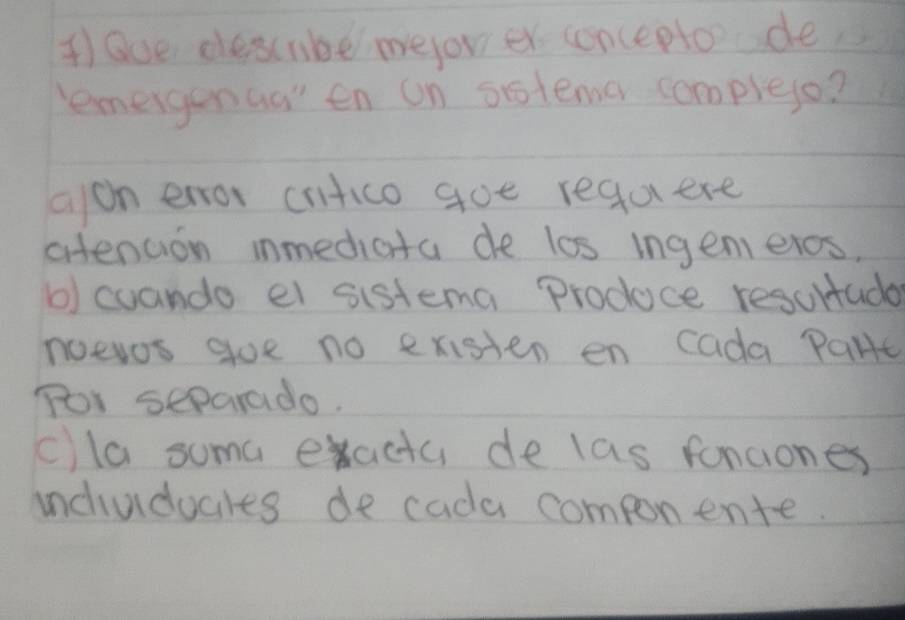 1) Que describe mejor el concepto de
"emergencia" en un sistema complejo?
a) Un error critico que requiere
atención inmediata de los ingenieros.
b) cuando el sistema Produce resultados
nuevos que no existen en cada Parte
Por separado.
c) la suma exacta de las funciones
individuales de cada componente.